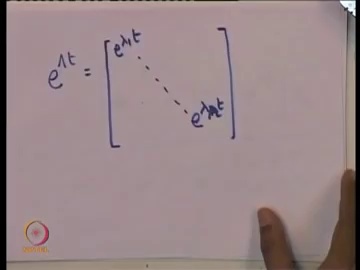 e^Λt = [ e^λ₁t
e^λₙt ]